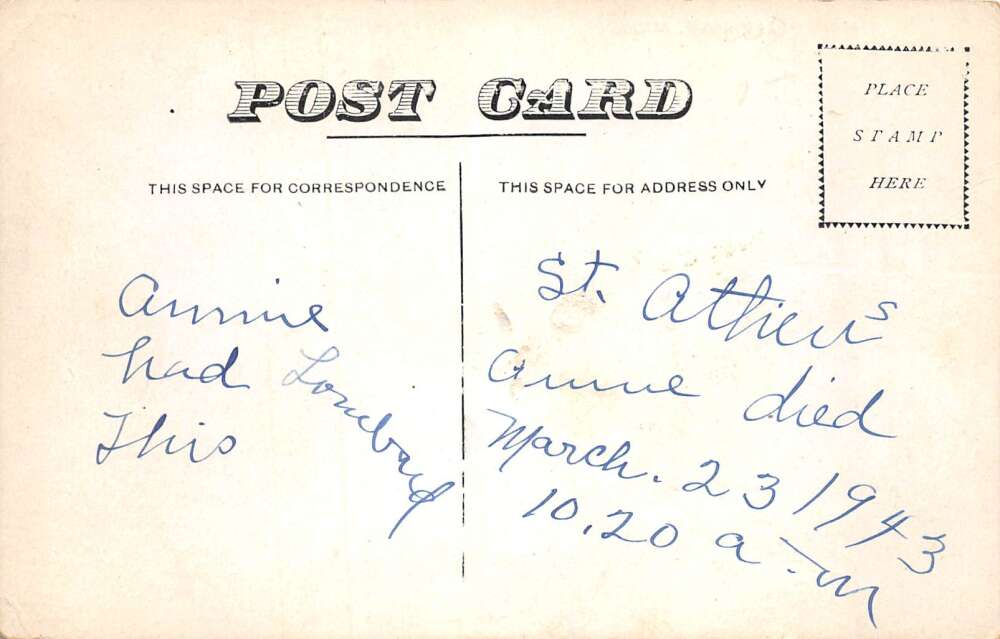 POST CARD
PLACE
STAMP
HERE
THIS SPACE FOR CORRESPONDENCE
THIS SPACE FOR ADDRESS ONLY
Annie
had Lombard
This
St. Athiens
Anne died
March. 23 1943
10.20 a.m